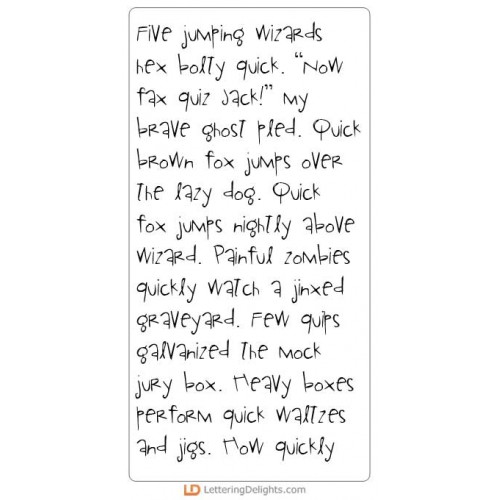 Five jumping wizards
hex bolty quick. "Now
fax quiz Jack!" My
brave ghost pled. Quick
brown fox jumps over
the lazy dog. Quick
fox jumps nightly above
wizard. Painful zombies
quickly watch a jinxed
graveyard. Few quips
galvanized the mock
jury box. Heavy boxes
perform quick waltzes
and jigs. How quickly
LD LetteringDelights.com